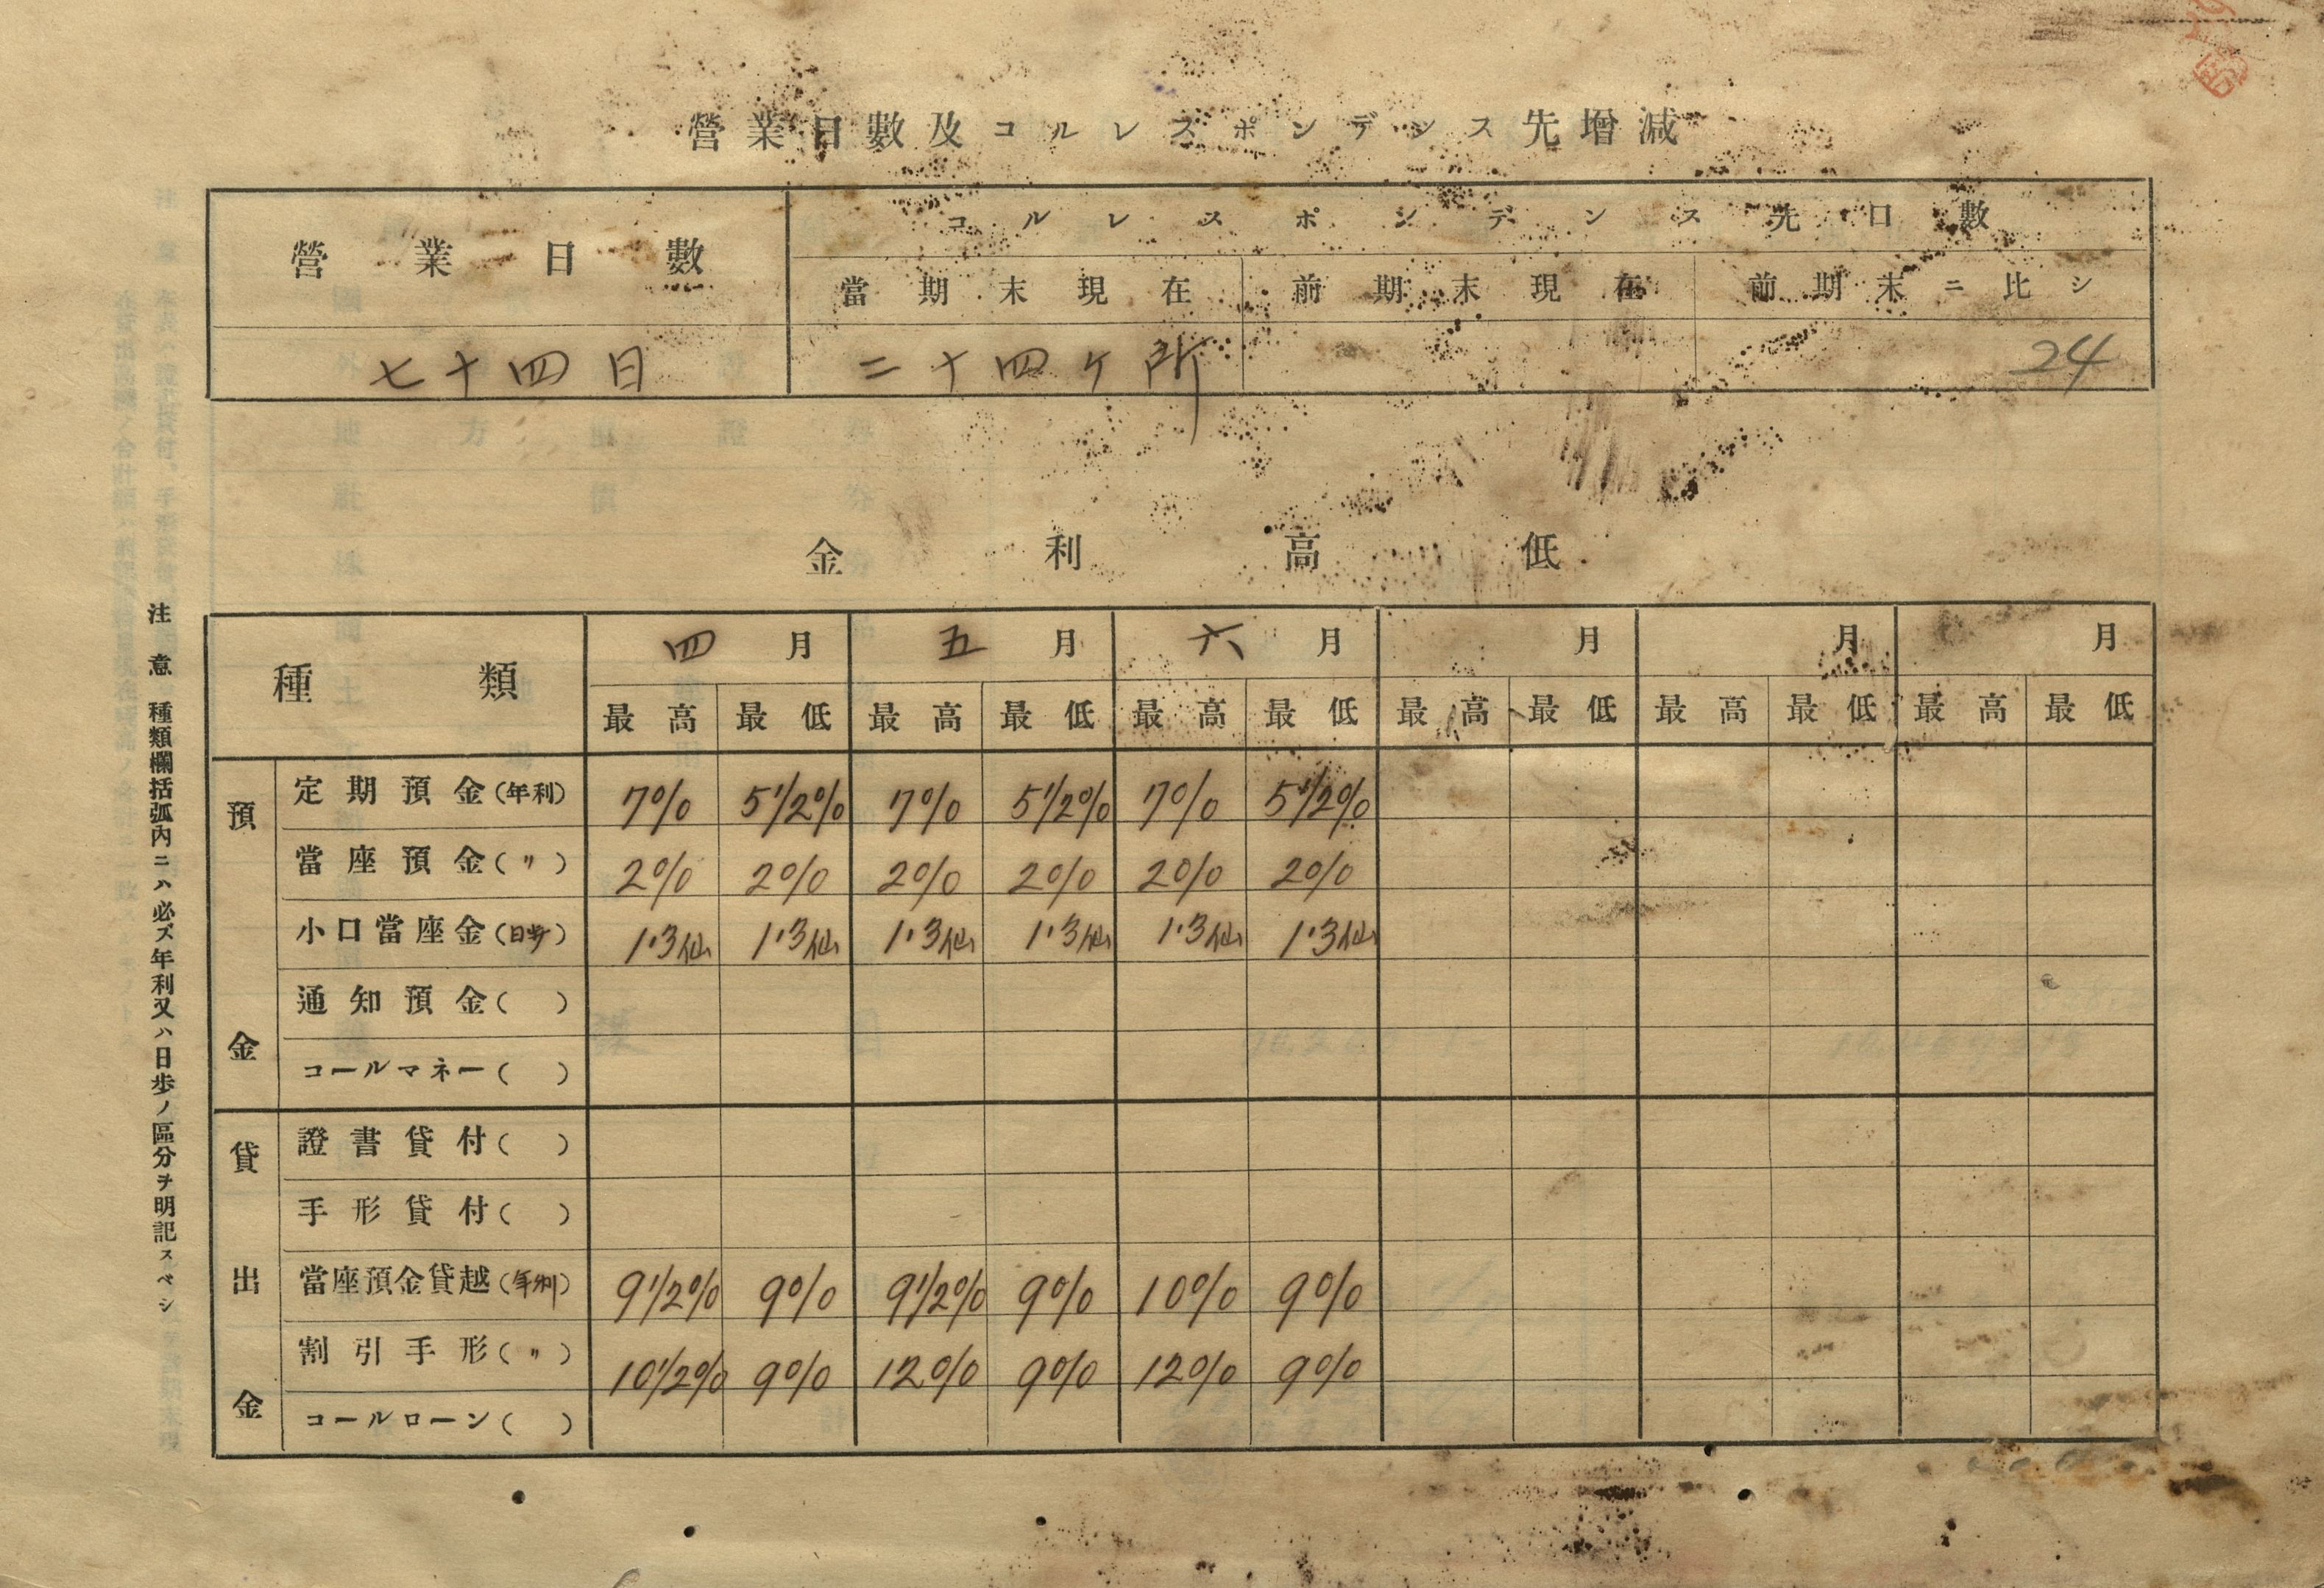 營業日數及コルレスポンデンス先増減
營業日數 コルレスポンデンス先口數
當期末現在 前期末現在 前期末ニ比シ
七十四日 二十四ヶ所 24
金利高低
種類 四月 五月 六月 月 月 月
最高 最低 最高 最低 最高 最低 最高 最低 最高 最低 最高 最低
預金
定期預金(年利) 7% 5 1/2% 7% 5 1/2% 7% 5 1/2%
當座預金(〃) 2% 2% 2% 2% 2% 2%
小口當座金(日歩) 1.3仙 1.3仙 1.3仙 1.3仙 1.3仙 1.3仙
通知預金( )
コールマネー( )
貸出金
證書貸付( )
手形貸付( )
當座預金貸越(年利) 9 1/2% 9% 9 1/2% 9% 10% 9%
割引手形(〃) 10 1/2% 9% 12% 9% 12% 9%
コールローン( )
注意 種類欄括弧内ニハ必ズ年利又ハ日歩ノ區分ヲ明記スベシ